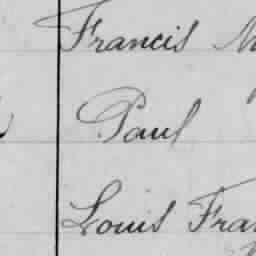 Francis
Paul
Louis Fran